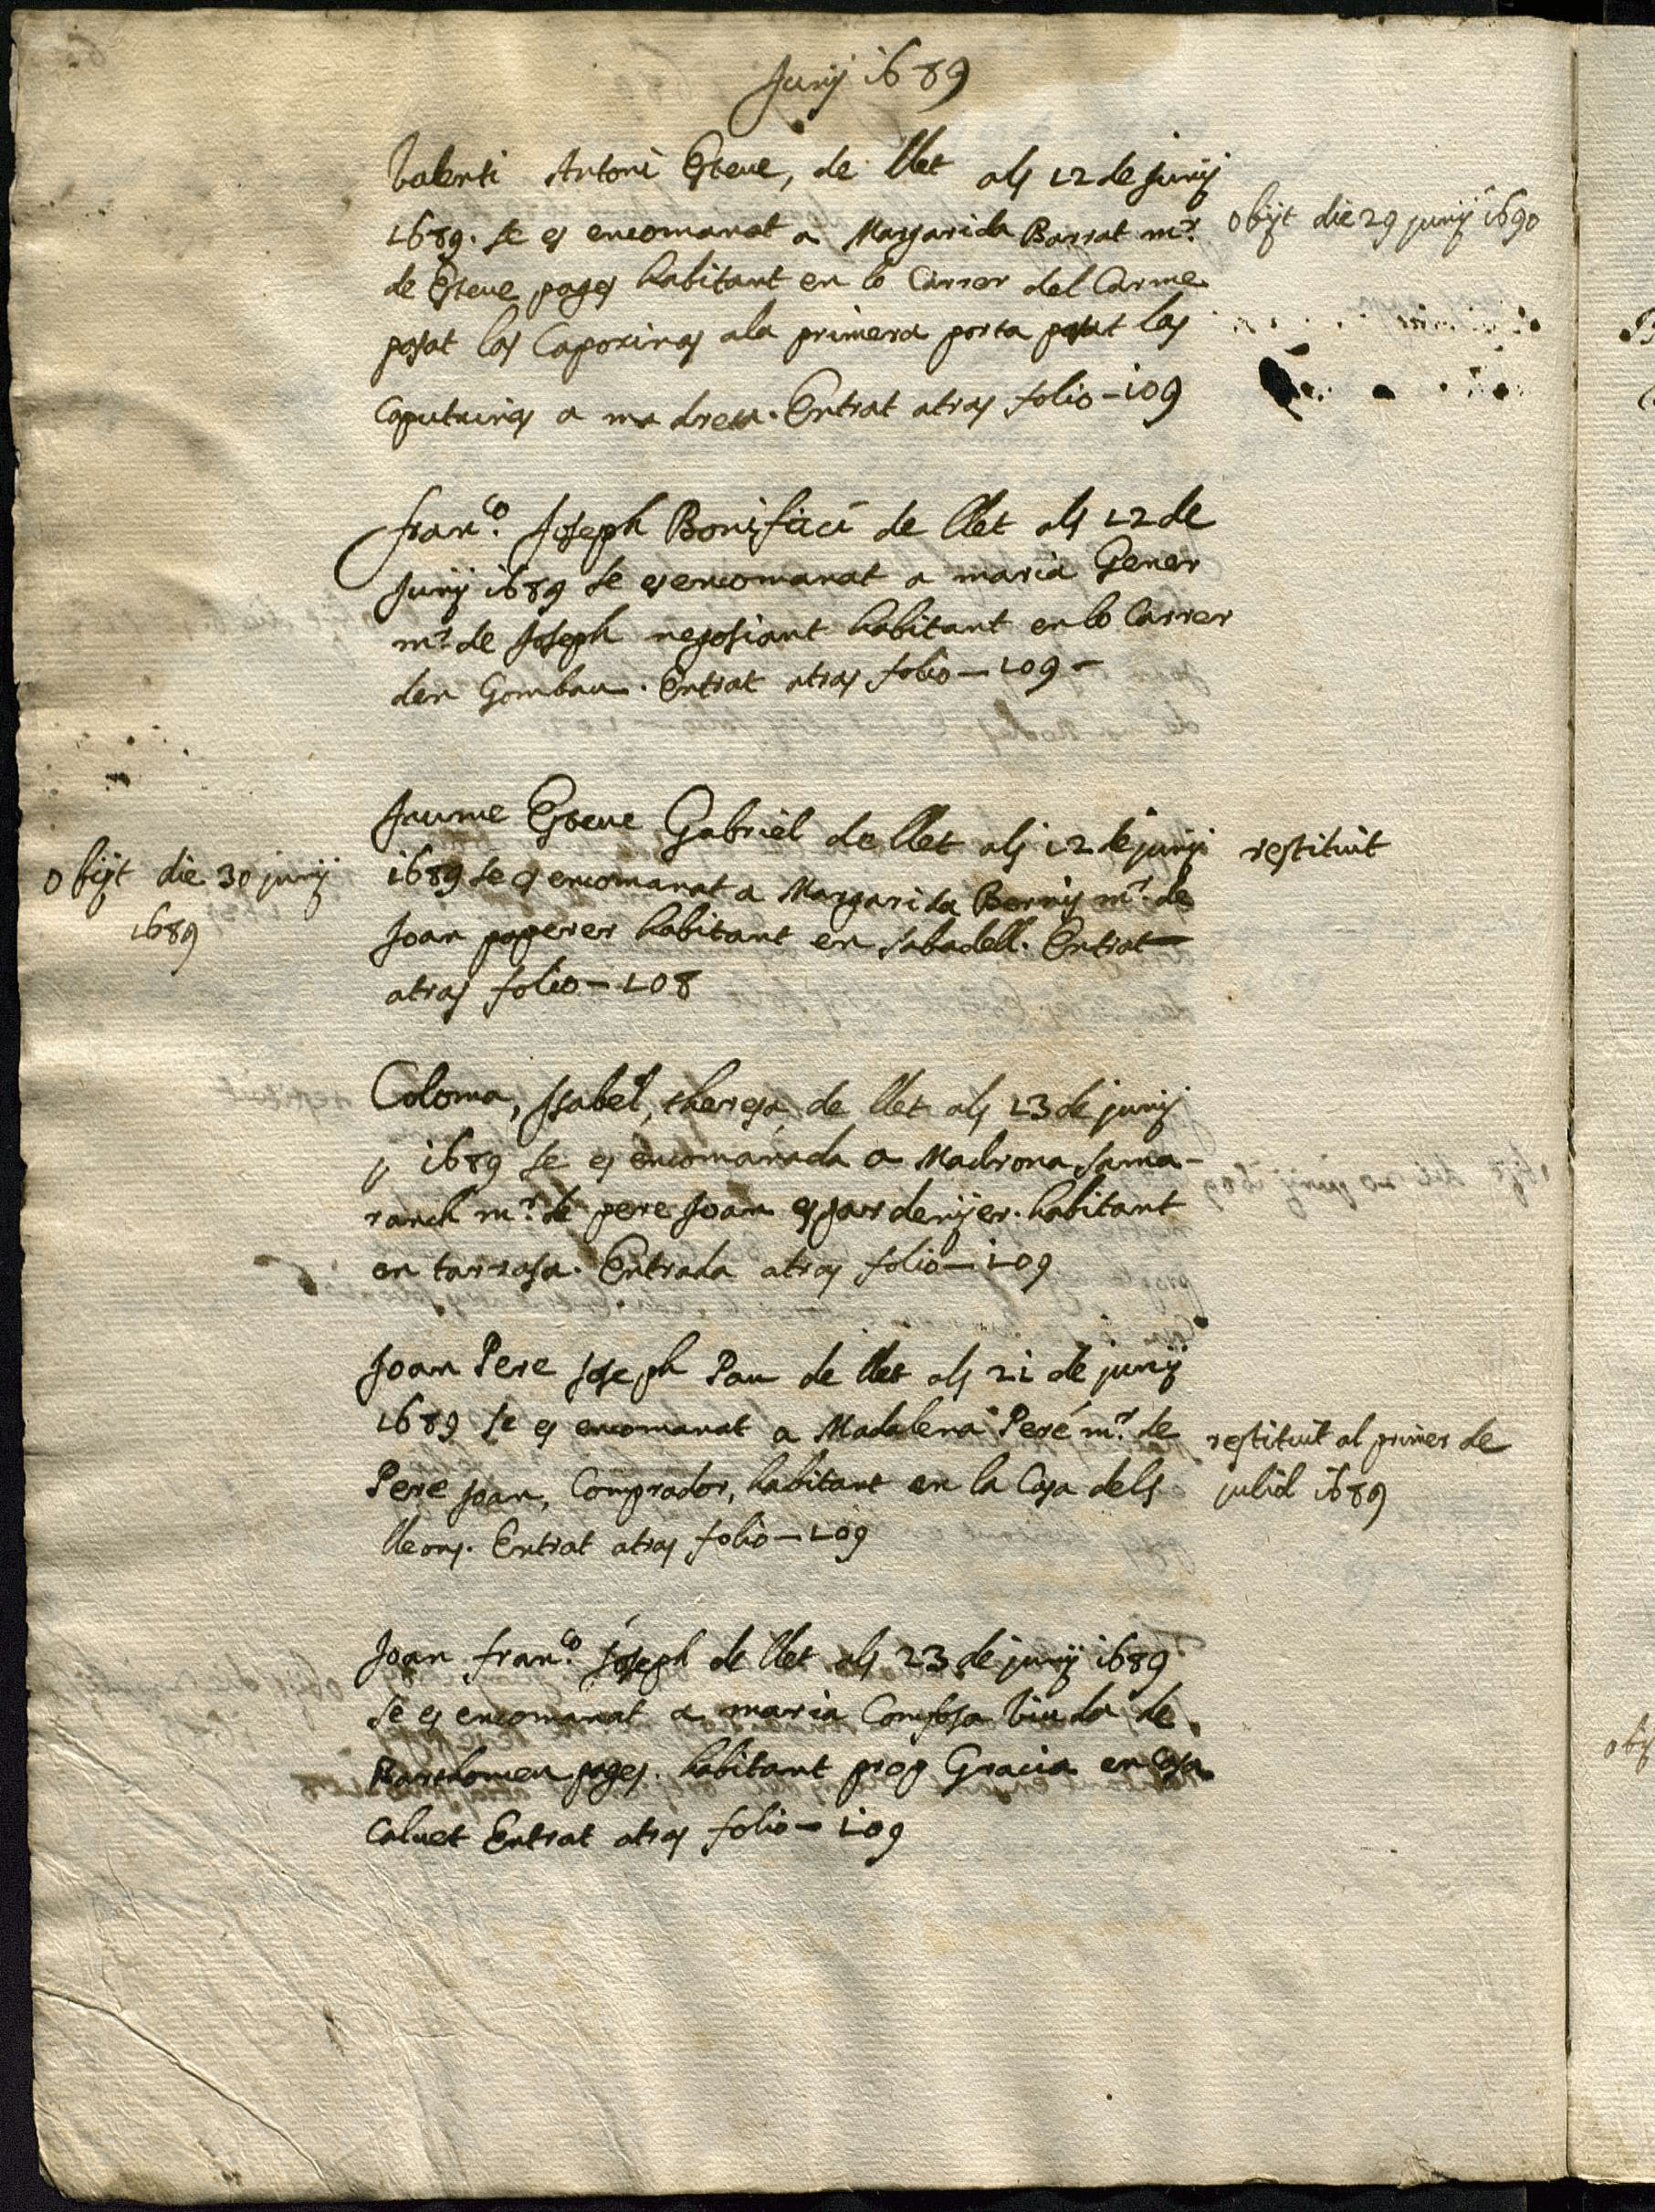 Junÿ 1689
Valenti Antoni Esteve, de llet als 12 de junÿ
1689. se es encomanat a Margarida Barrat mr.
de Esteve pages habitant en lo Carrer del Carme
pasat las Caporinas ala primera porta pasat las
Caputxinas a ma dreta. Entrat atras folio - 109
obÿt die 29 junÿ 1690
franco. Joseph Bonifaci de llet als 12 de
Junÿ 1689 se es encomanat a maria Gener
mr. de Joseph negosiant habitant en lo Carrer
den Gombau. Entrat atras folio - 109 -
Jaume Esteve Gabriel de llet als 12 de junÿ
1689 se es encomanat a Margarida Bernis mr. de
Joan paperer habitant en sabadell. Entrat
atras folio - 108
restituit
obÿt die 30 junÿ
1689
Coloma, Isabel, theresa, de llet als 13 de junÿ
1689 se es encomanada a Madrona sama-
ranch mr. de pere Joan espardenÿer. habitant
en tarrasa. Entrada atras folio - 109
Joan Pere Joseph Pau de llet als 21 de junÿ
1689 se es encomanat a Madalena Peré mr. de
Pere Joan, Comprador, habitant en la Casa dels
lleons. Entrat atras folio - 109
restituit al primer de
juliol 1689
Joan franco. Joseph de llet als 23 de junÿ 1689
se es encomanat a maria viuda de
Barthomeu pages. habitant prop Gracia en Casa
Calvet Entrat atras folio - 109